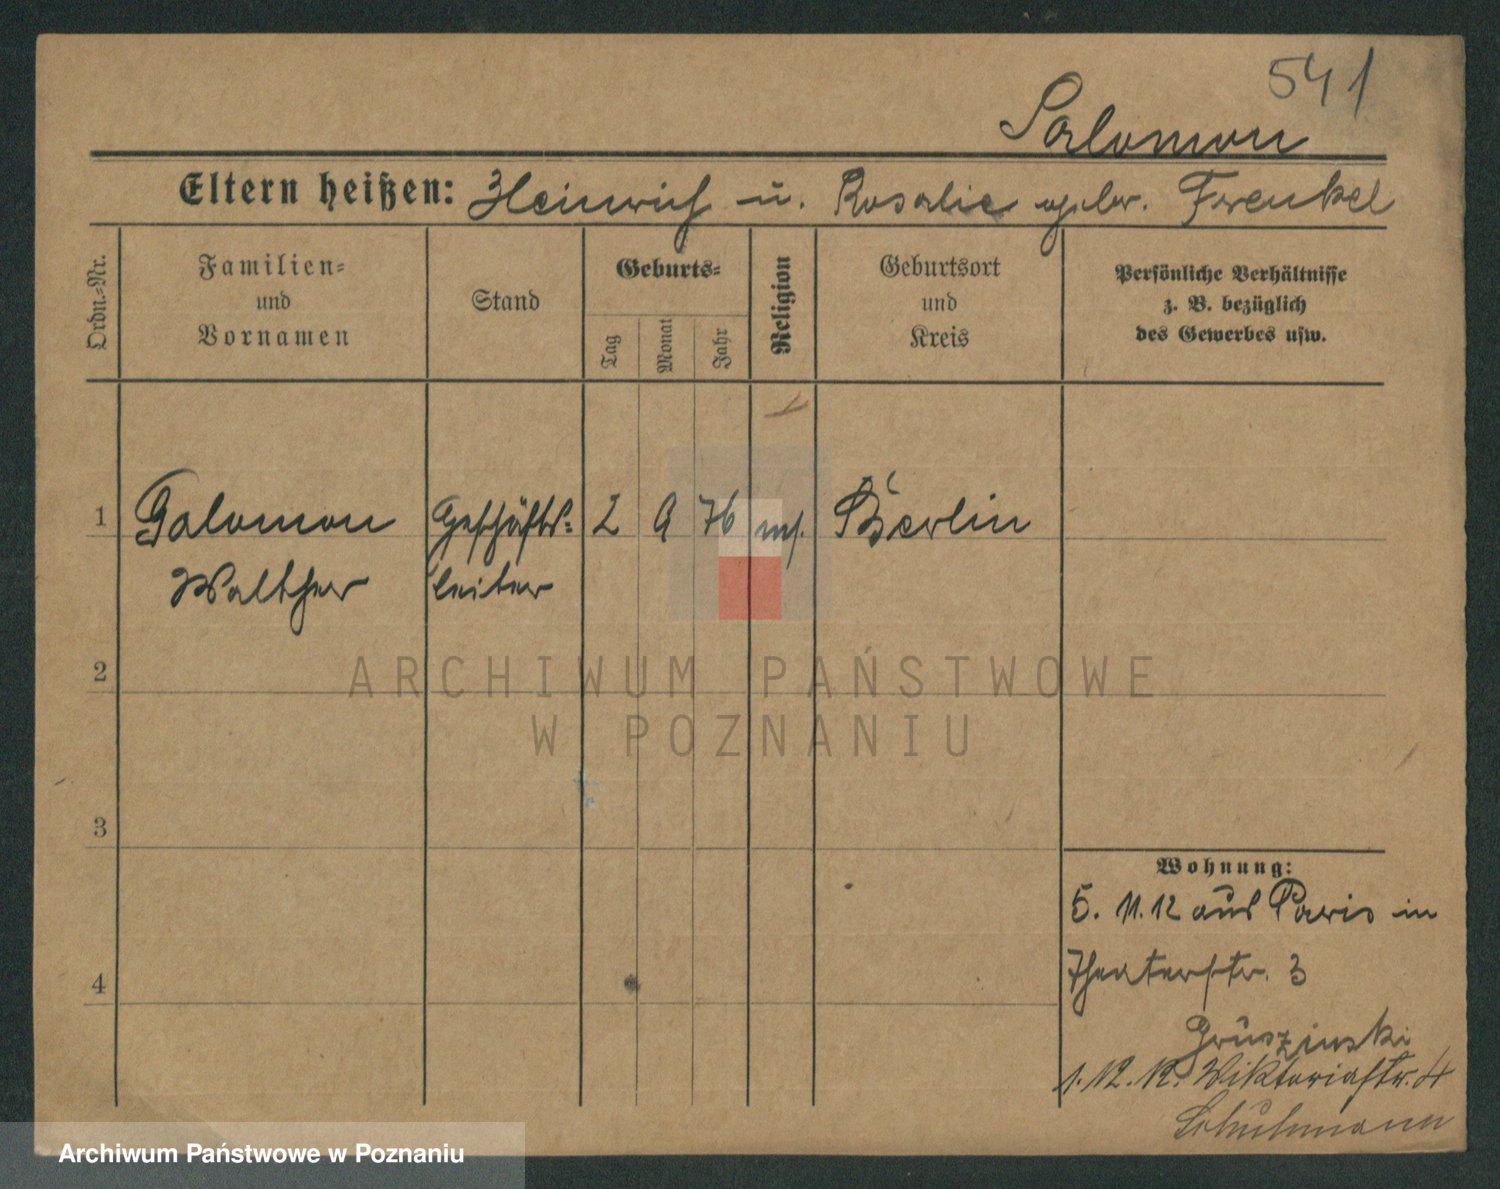 541
Salomon
Eltern heißen: Heinrich u. Rosalie gebr. Frenkel
Ordn.-Nr.
Familien-
und
Vornamen
Stand
Geburts-
Tag
Monat
Jahr
Religion
Geburtsort
und
Kreis
Persönliche Verhältnisse
z. B. bezüglich
des Gewerbes usw.
1 Salomon Geschäfts- 2 9 76 mos. Berlin
Walther leiter
2
ARCHIWUM PAŃSTWOWE
W POZNANIU
3
Wohnung:
5. 11. 12 aus Paris in
4 Theaterstr. 3
Gruszinski
1. 12. 12. Wiktoriastr. 4
Schuhmann
Archiwum Państwowe w Poznaniu